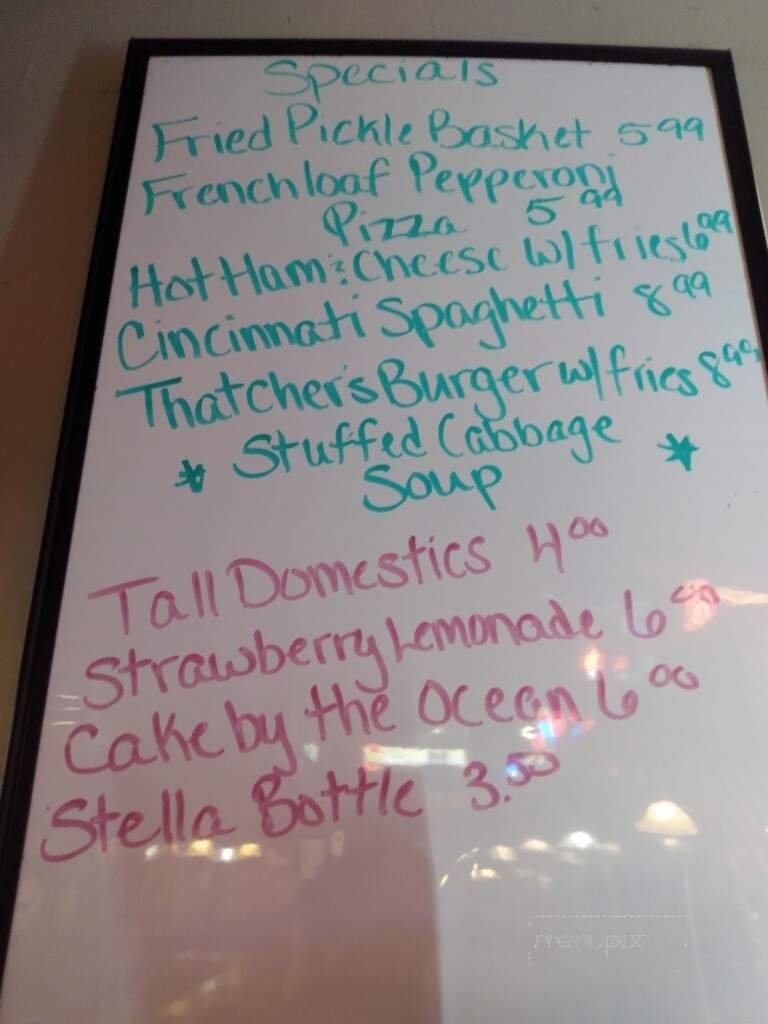 Specials
Fried Pickle Basket 5 99
French loaf Pepperoni
Pizza 5 99
Hot Ham & Cheese w/ fries 6 99
Cincinnati Spaghetti 8 99
Thatcher's Burger w/ fries 8 99
* Stuffed Cabbage *
Soup
Tall Domestics 4 00
Strawberry Lemonade 6 00
Cake by the Ocean 6 00
Stella Bottle 3.50
menupix